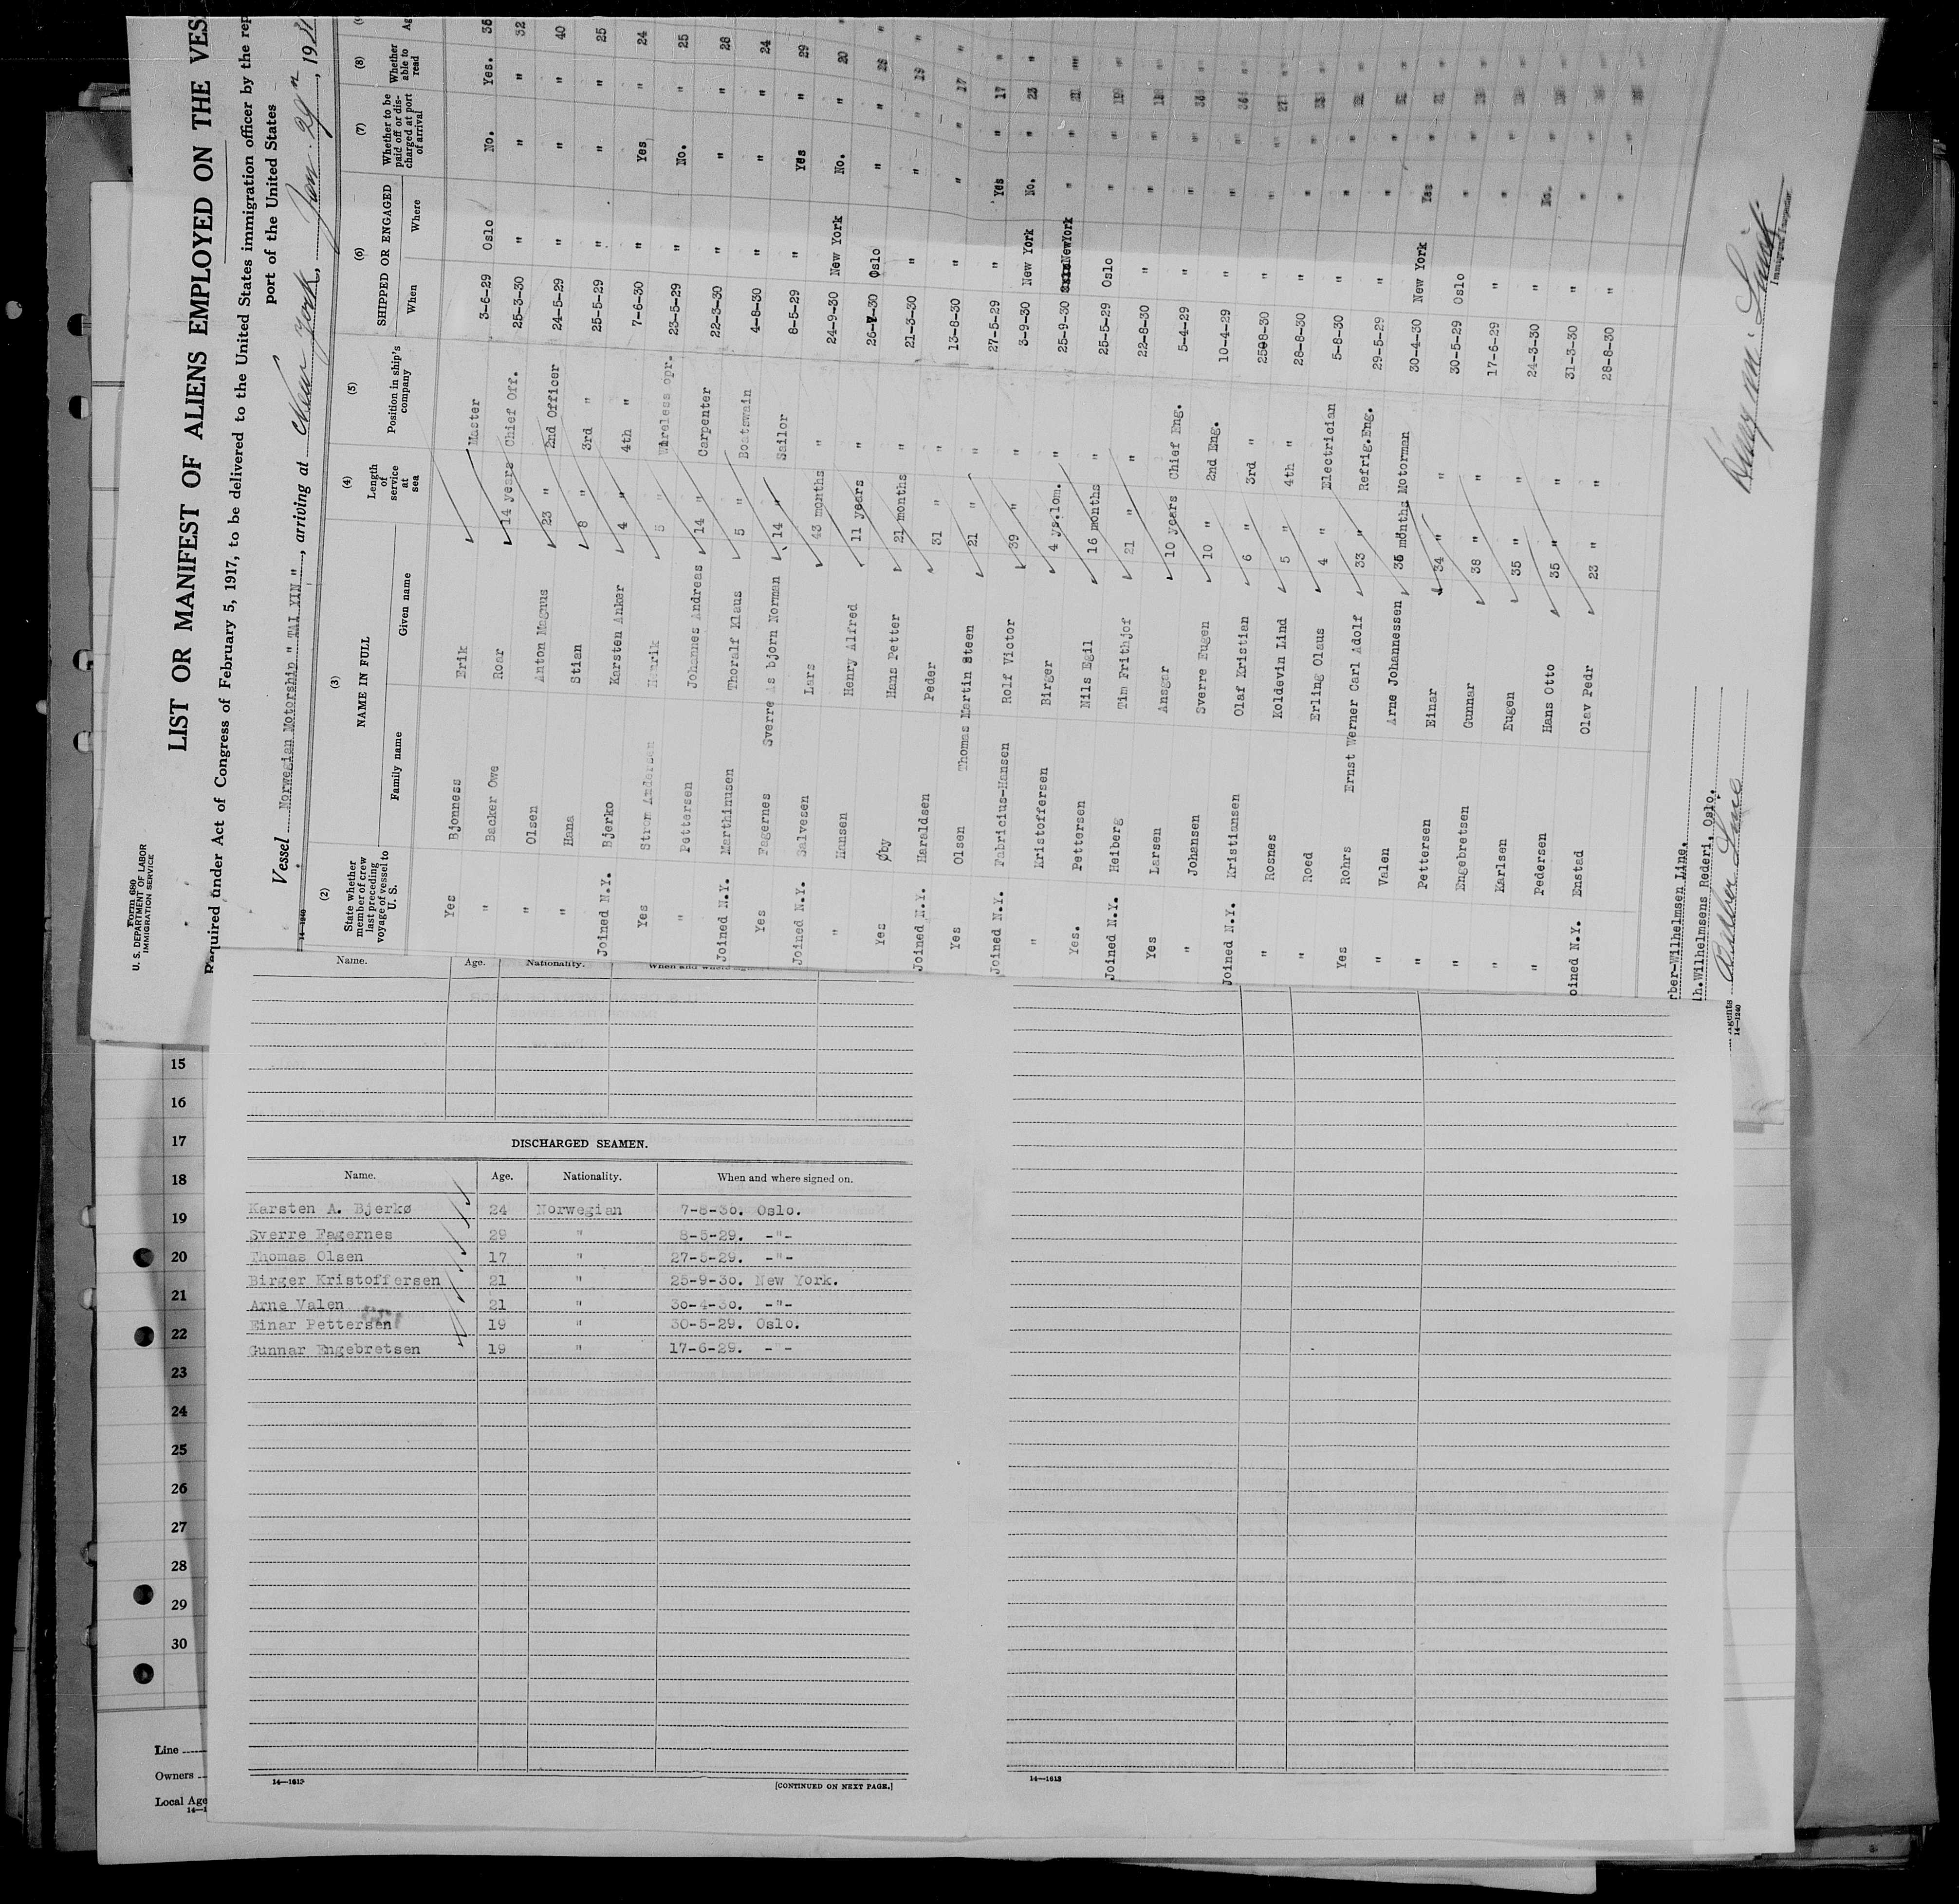 Form 680
U. S. DEPARTMENT OF LABOR
IMMIGRATION SERVICE
LIST OR MANIFEST OF ALIENS EMPLOYED ON THE VES
Required under Act of Congress of February 5, 1917, to be delivered to the United States immigration officer by the rep
port of the United States
Vessel Norwegian Motorship " TAI YIN ", arriving at New York, Jan. 29th, 1931
14—1240
(2) (3) (4) (5) (6) (7) (8)
State whether member of crew last preceding voyage of vessel to U. S. NAME IN FULL Length of service at sea Position in ship's company SHIPPED OR ENGAGED Whether to be paid off or discharged at port of arrival Whether able to read Ag
Family name Given name When Where
Yes Bjonness Erik Master 3-6-29 Oslo No. Yes. 36
" Backer Owe Roar 14 years Chief Off. 25-3-30 " " " 32
" Olsen Anton Magnus 23 " 2nd Officer 24-5-29 " " " 40
" Hana Stian 8 " 3rd " 25-5-29 " " " 25
Joined N.Y. Bjerko Karsten Anker 4 " 4th " 7-6-30 " Yes " 24
Yes Strom Andersen Henrik 5 " Wireless opr. 23-5-29 " No. " 25
" Pettersen Johannes Andreas 14 " Carpenter 22-3-30 " " " 28
Joined N.Y. Marthinusen Thoralf Klaus 5 " Boatswain 4-8-30 " " " 24
Yes Fagernes Sverre As bjorn Norman 14 " Sailor 8-5-29 " Yes " 29
Joined N.Y. Salvesen Lars 43 months " 24-9-30 New York No. " 20
" Hansen Henry Alfred 11 years " 26-7-30 Oslo " "
Yes Øby Hans Petter 21 months " 21-3-30 " " "
Joined N.Y. Haraldsen Peder 31 " " 13-8-30 " " " 17
Yes Olsen Thomas Martin Steen 21 " " 27-5-29 " Yes " 17
Joined N.Y. Fabricius-Hansen Rolf Victor 39 " " 3-9-30 New York No. " 23
" Kristoffersen Birger 4 ys.1om. " 25-9-30 NewYork " " 21
Yes. Pettersen Nils Egil 16 months " 25-5-29 Oslo " "
Joined N.Y. Heiberg Tim Frithjof 21 " " 22-8-30 " " "
Yes Larsen Ansgar 10 years Chief Eng. 5-4-29 " " "
" Johansen Sverre Eugen 10 " 2nd Eng. 10-4-29 " " "
Joined N.Y. Kristiansen Olaf Kristian 6 " 3rd " 2508-30 " " "
" Rosnes Koldevin Lind 5 " 4th " 28-8-30 " " "
" Roed Erling Olaus 4 " Electrician 5-8-30 " " "
Yes Rohrs Ernst Werner Carl Adolf 33 " Refrig.Eng. 29-5-29 " " "
" Valen Arne Johannessen 36 months Motorman 30-4-30 New York Yes "
" Pettersen Einar 34 " " 30-5-29 Oslo " "
" Engebretsen Gunnar 38 " " 17-6-29 " " "
" Karlsen Eugen 35 " " 24-3-30 " No. "
" Pedersen Hans Otto 35 " " 31-3-30 " " "
oined N.Y. Enstad Olav Pedr 23 " " 28-8-30 " " "
rber-Wilhelmsen Line.
lh.Wilhelmsens Rederi, Oslo.
Agents Barber Line
14—1240
Immigrant Inspector
Name. Age. Nationality. When and where
DISCHARGED SEAMEN.
Name. Age. Nationality. When and where signed on.
Karsten A. Bjerkø 24 Norwegian 7-8-30. Oslo.
Sverre Fagernes 29 " 8-5-29. -"-
Thomas Olsen 17 " 27-5-29. -"-
Birger Kristoffersen 21 " 25-9-30. New York.
Arne Valen 21 " 30-4-30. -"-
Einar Pettersen 19 " 30-5-29. Oslo.
Gunnar Engebretsen 19 " 17-6-29. -"-
14—1613
[CONTINUED ON NEXT PAGE.]
14—1613
15
16
17
18
19
20
21
22
23
24
25
26
27
28
29
30
Line
Owners
Local Age
14—1